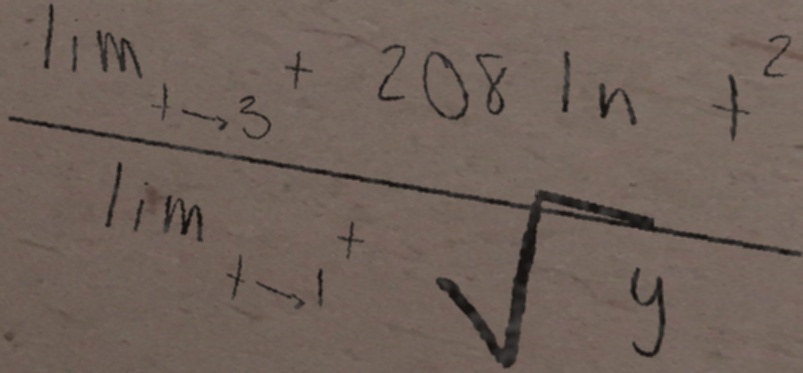 lim t→3⁺ 208 ln t²
lim t→1⁺ √y